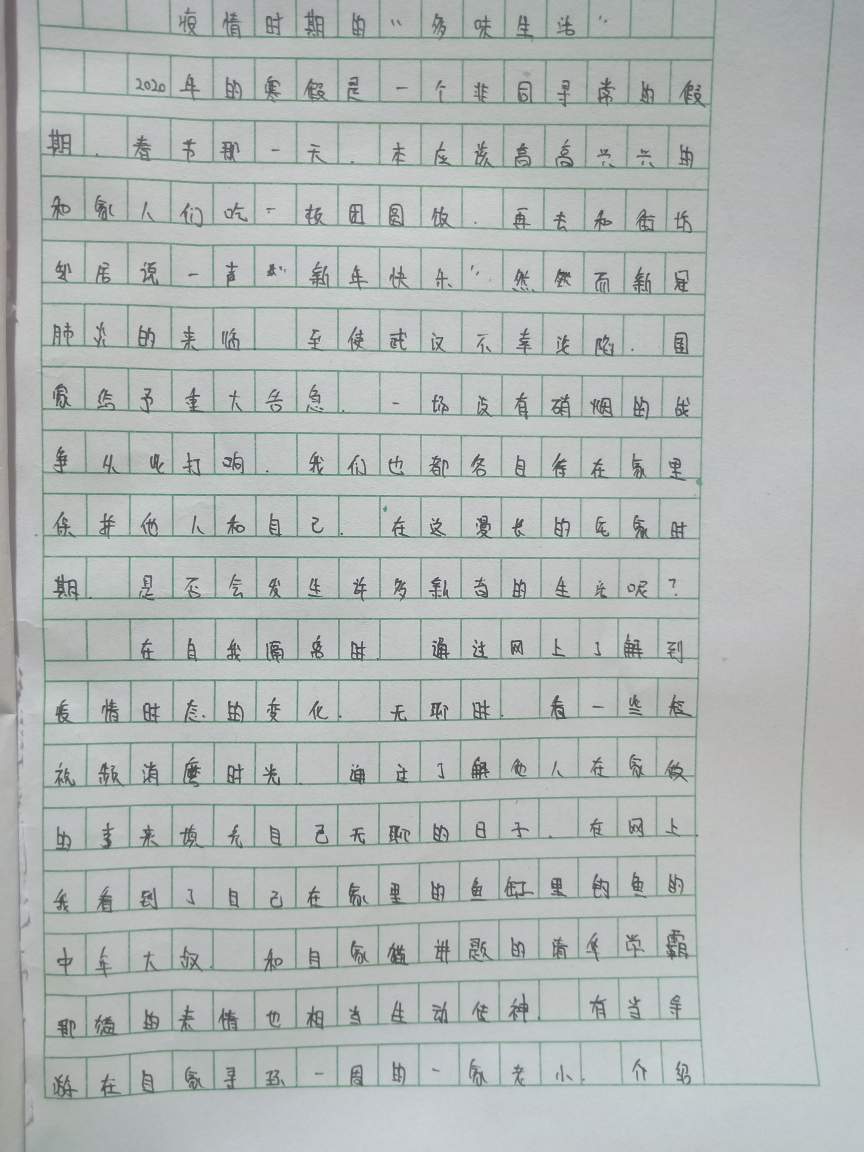 疫情时期的“多味生活”
2020年的寒假是一个非同寻常的假
期.春节那一天.本应该高高兴兴的
和家人们吃一顿团圆饭.再去和街坊
邻居说一声“新年快乐”.然然而新冠
肺炎的来临 至使武汉不幸沦陷.国
家给予重大告急.一场没有硝烟的战
争从此打响.我们也都各自待在家里
保护他人和自己.在这漫长的宅家时
期.是否会发生许多新奇的生活呢?
在自我隔离时.通过网上了解到
疫情时态.的变化.无聊时.看一些短
视频消磨时光.通过了解他人在家做
的事来填充自己无聊的日子.在网上
我看到了自己在家里的鱼缸里钓鱼的
中年大叔.和自家猫讲题的青年学霸
那猫的表情也相当生动传神.有当导
游在自家寻环一周的一家老小.介绍